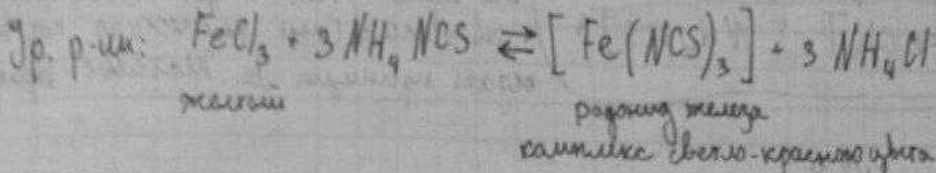 Ур. р-ии: FeCl₃ + 3 NH₄NCS ⇄ [Fe(NCS)₃] + 3 NH₄Cl
желтый роданид железа
комплекс светло-красного цвета